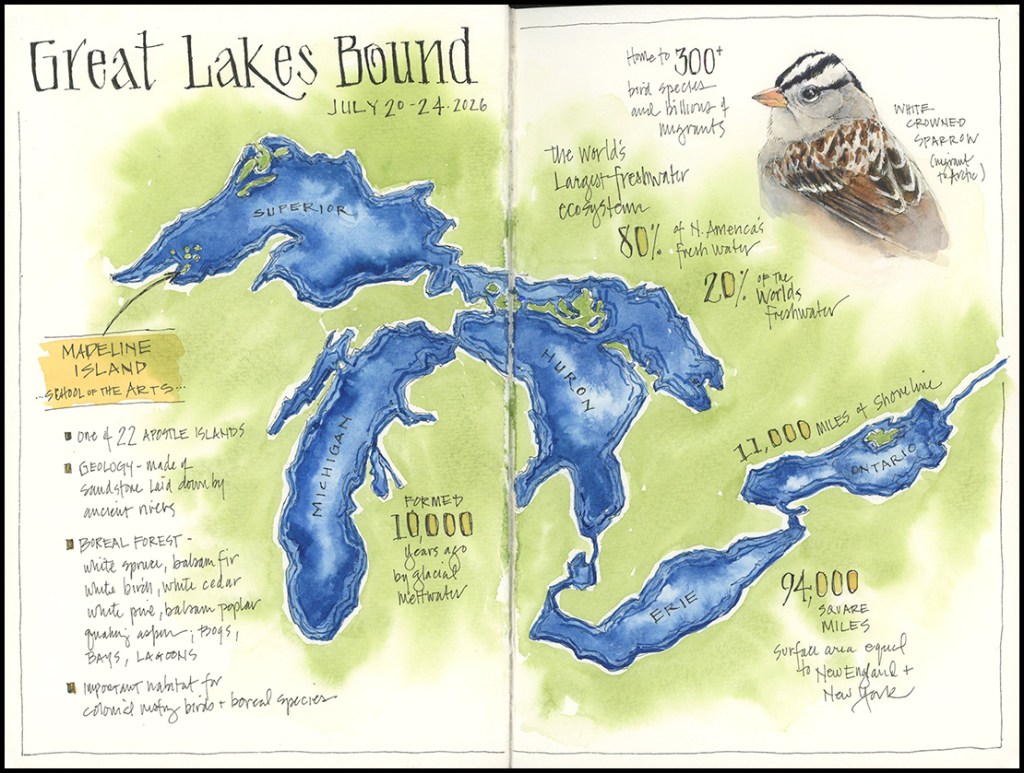 Great Lakes Bound
JULY 20-24·2026
SUPERIOR
MADELINE
ISLAND
...SCHOOL OF THE ARTS...
ONE of 22 APOSTLE ISLANDS
GEOLOGY - made of
sandstone laid down by
ancient rivers
BOREAL FOREST -
white spruce, balsam fir
white birch, white cedar
white pine, balsam poplar
quaking aspen; BOGS,
BAYS, LAGOONS
IMPORTANT habitat for
colonial nesting birds + boreal species
MICHIGAN
FORMED
10,000
years ago
by glacial
meltwater
Home to 300+
bird species
and billions of
migrants
WHITE
CROWNED
SPARROW
(migrant
to Arctic)
The World's
Largest freshwater
ecosystem
80% of N. America's
fresh water
20% of the
World's
freshwater
HURON
11,000 MILES of Shoreline
ONTARIO
ERIE
94,000
SQUARE
MILES
surface area equal
to New England +
New York